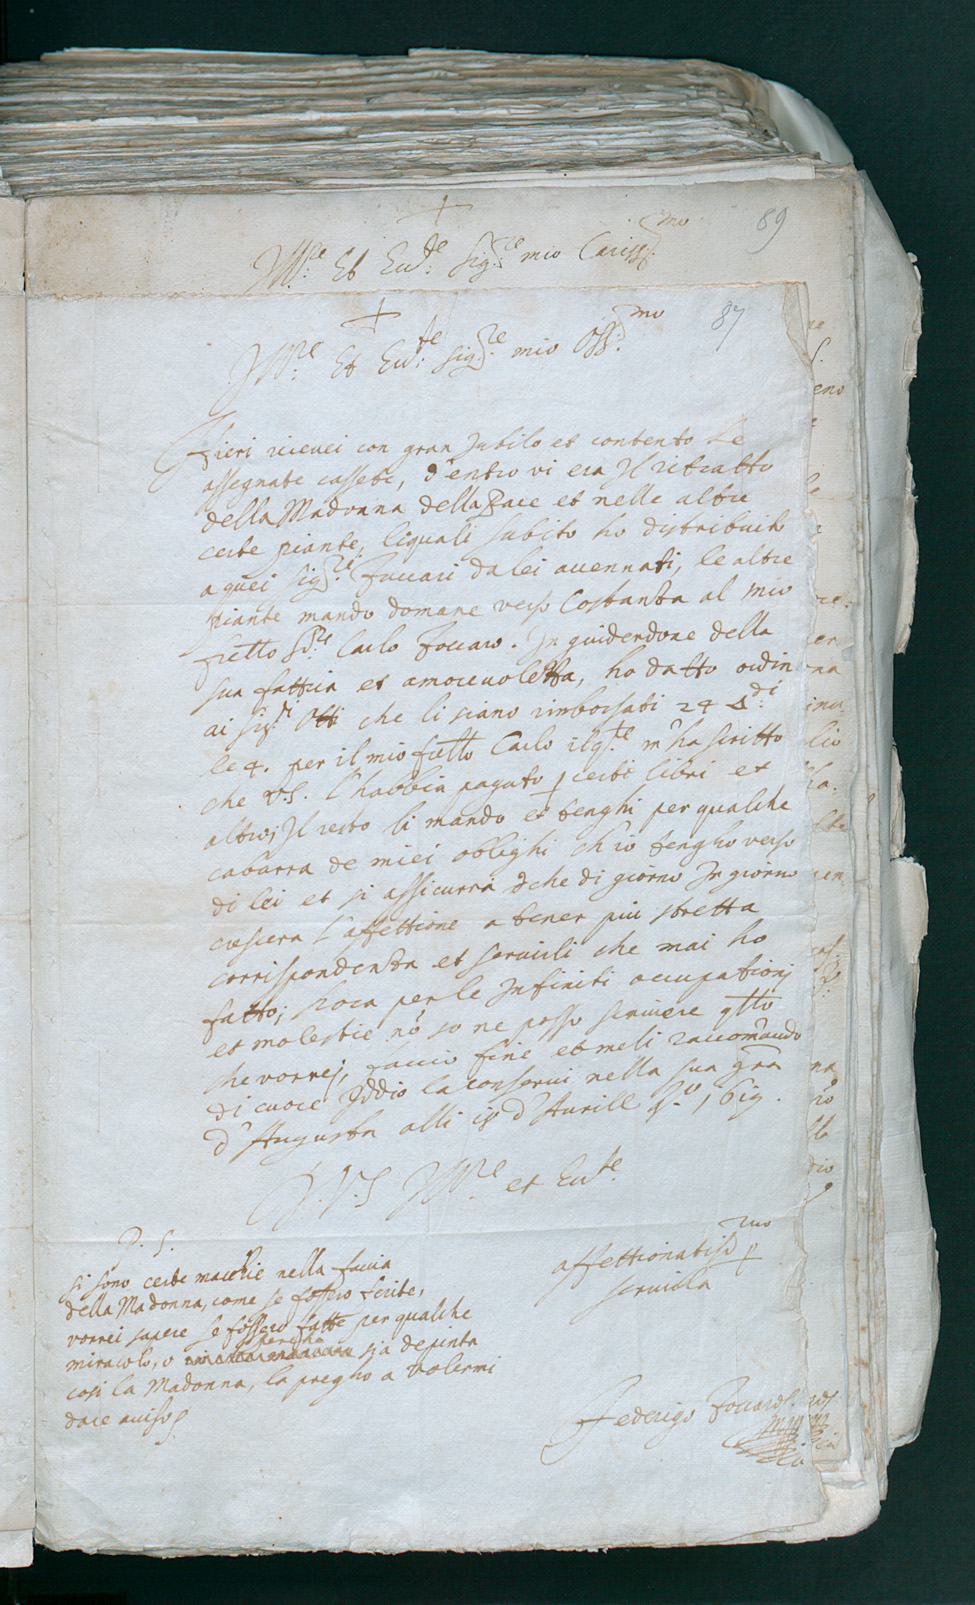 89
Ill.re Et Ecc.te Sig.re mio Cariss.mo
87
Ill.re Et Ecc.te Sig.re mio Oss.mo
Hieri riceuei con gran Jubilo et contento le
assegnate cassete, d'entro vi era Il ritratto
della Madonna della Pace et nelle altre
certe piante, liquali subito ho distribuito
a quei Sig.ri Foccari da lei auennati, le altre
piante mando domane verso Costantza al mio
fratello Carlo Foccaro. In guiderdone della
sua fattica et amoreuolezza, ho datto ordin
ai Sig.ri Otti che li siano rimborsati 24 di
le 4. per il mio Carlo m'ha scritto
che V.S. l'habbia pagato p certi libri et
altro; Il resto li mando et tenghi per qualche
cabarra de miei oblighi ch'io tengho verso
di lei et si assicurra che di giorno In giorno
crescera l'affettione a tener piu stretta
corrispondentza et seruirli che mai ho
fatto; hora per le Infiniti occupationj
et molestie nō so ne posso scriuere
che vorrej, faccio fine et meli raccomādo
di cuore Iddio la conserui nella sua gra
d'Augusta alli 18 d'Aurill 1619.
D.V.S. Ill.re et Ecc.te
affettionatiss.mo p
seruirla
P. S.
si sono certe macchie nella faccia
della Madonna, come se fossero ferite,
vorrei sapere se fossero fatte per qualche
miracolo, o perche sia depinta
cosi la Madonna, la pregho a volermi
dare auiso
Federigo Foccaro